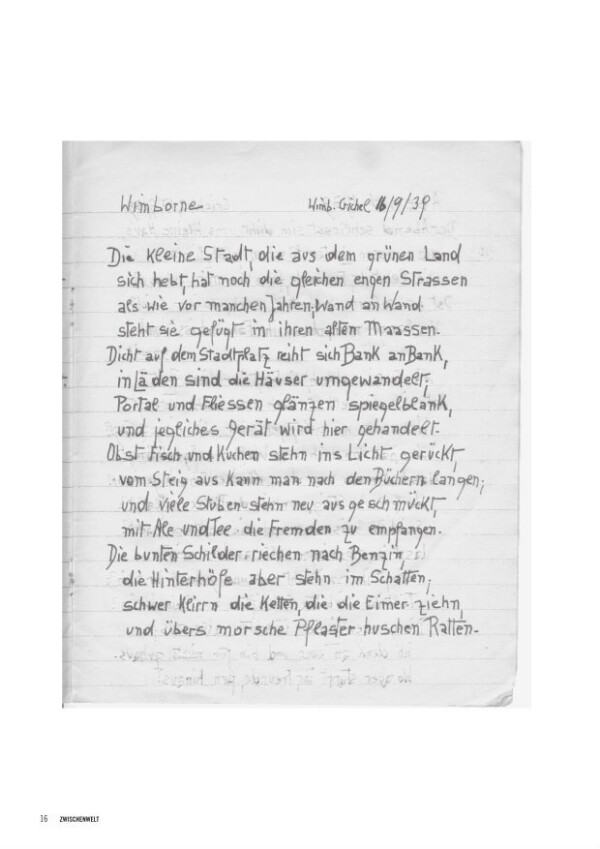 Wimborne
Wimb. Gichel 16/9/39
Die kleine Stadt, die aus dem grünen Land
sich hebt, hat noch die gleichen engen Strassen
als wie vor manchen Jahren, Wand an Wand
steht sie gefügt in ihren alten Maassen.
Dicht auf dem Stadtplatz reiht sich Bank an Bank,
in Läden sind die Häuser umgewandelt,
Portal und Fliessen glänzen spiegelblank,
und jegliches Gerät wird hier gehandelt.
Obst Fisch und Kuchen stehn ins Licht gerückt,
vom Steig aus kann man nach den Büchern langen;
und viele Stuben stehn neu ausgeschmückt,
mit Ale und Tee die Fremden zu empfangen.
Die bunten Schilder riechen nach Benzin,
die Hinterhöfe aber stehn im Schatten;
schwer klirrn die Ketten, die die Eimer ziehn,
und übers morsche Pflaster huschen Ratten.
16 ZWISCHENWELT